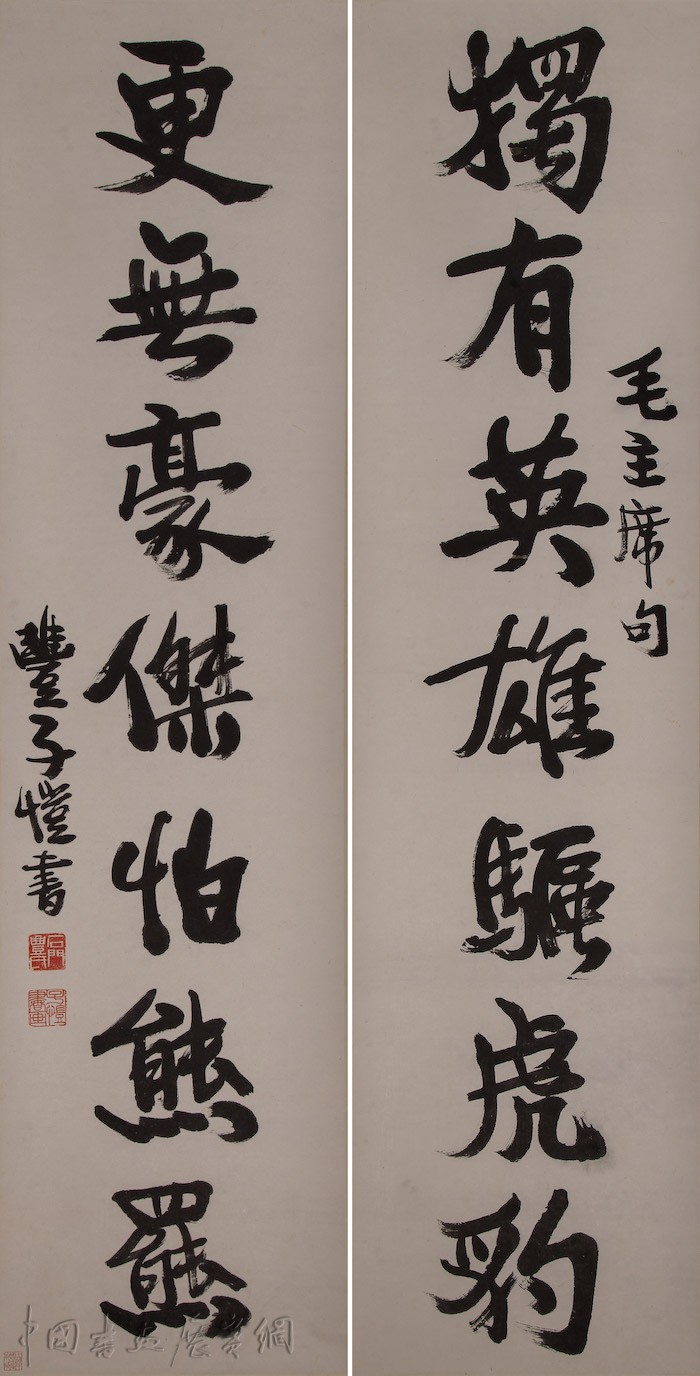 毛主席句
獨有英雄驅虎豹
更無豪傑怕熊羆
豐子愷書
石門豐氏
子愷書畫